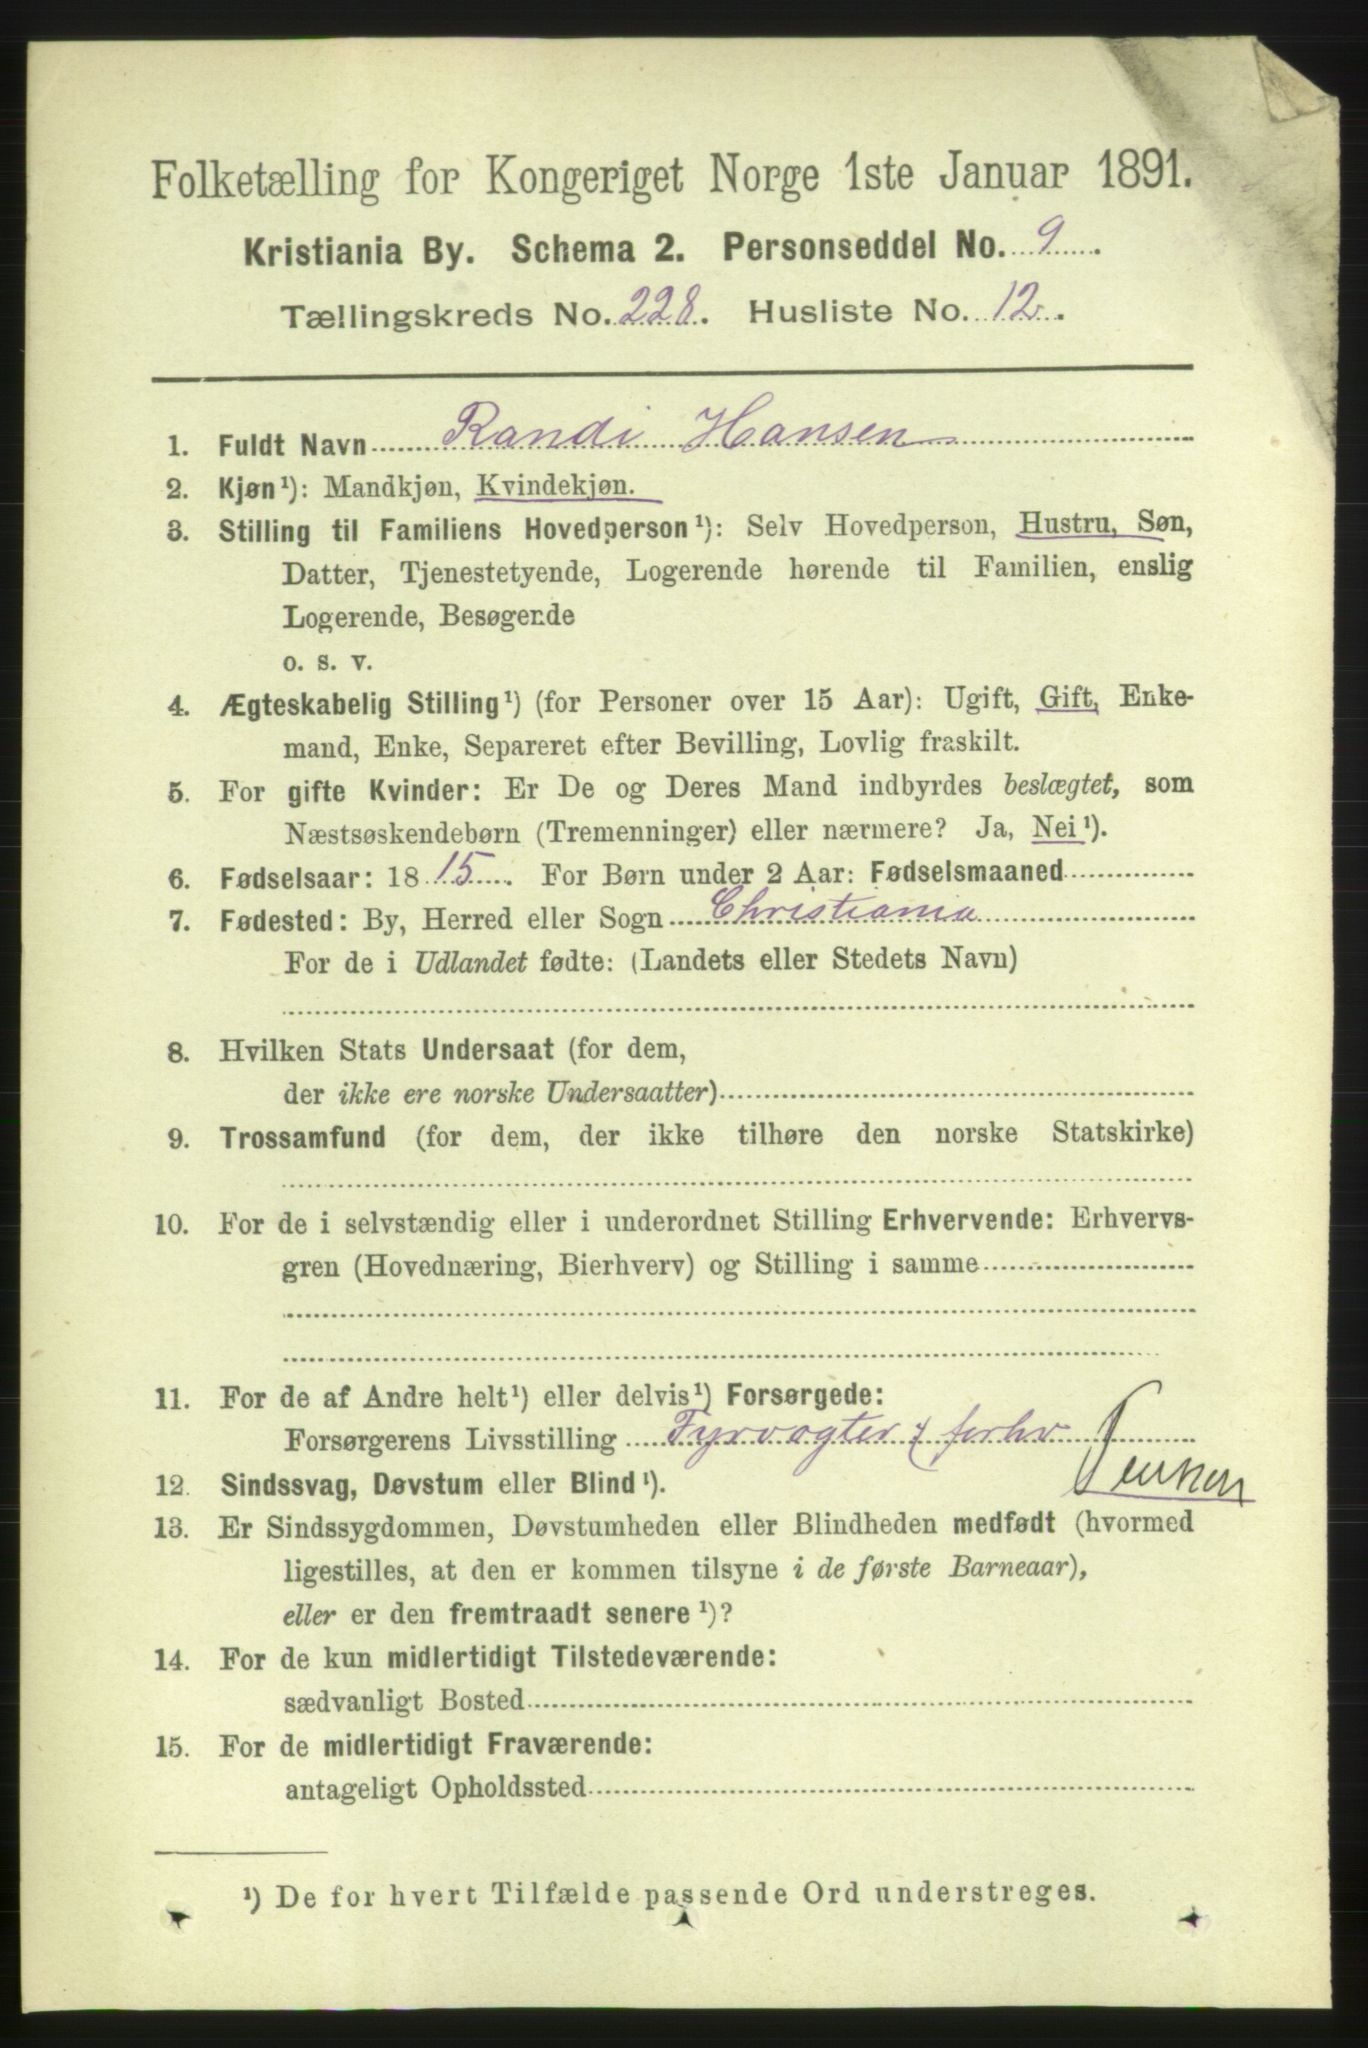 Folketælling for Kongeriget Norge 1ste Januar 1891.
Kristiania By. Schema 2. Personseddel No. 9.
Tællingskreds No. 228. Husliste No. 12.
1. Fuldt Navn Randi Hansen
2. Kjøn¹): Mandkjøn, Kvindekjøn.
3. Stilling til Familiens Hovedperson¹): Selv Hovedperson, Hustru, Søn,
Datter, Tjenestetyende, Logerende hørende til Familien, enslig
Logerende, Besøgende
o. s. v.
4. Ægteskabelig Stilling¹) (for Personer over 15 Aar): Ugift, Gift, Enke-
mand, Enke, Separeret efter Bevilling, Lovlig fraskilt.
5. For gifte Kvinder: Er De og Deres Mand indbyrdes beslægtet, som
Næstsøskendebørn (Tremenninger) eller nærmere? Ja, Nei¹).
6. Fødselsaar: 1815. For Børn under 2 Aar: Fødselsmaaned
7. Fødested: By, Herred eller Sogn Christiania
For de i Udlandet fødte: (Landets eller Stedets Navn)
8. Hvilken Stats Undersaat (for dem,
der ikke ere norske Undersaatter)
9. Trossamfund (for dem, der ikke tilhøre den norske Statskirke)
10. For de i selvstændig eller i underordnet Stilling Erhvervende: Erhvervs-
gren (Hovednæring, Bierhverv) og Stilling i samme
11. For de af Andre helt¹) eller delvis¹) Forsørgede:
Forsørgerens Livsstilling Fyrvogter forhv
12. Sindssvag, Døvstum eller Blind¹).
13. Er Sindssygdommen, Døvstumheden eller Blindheden medfødt (hvormed
ligestilles, at den er kommen tilsyne i de første Barneaar),
eller er den fremtraadt senere¹)?
14. For de kun midlertidigt Tilstedeværende:
sædvanligt Bosted
15. For de midlertidigt Fraværende:
antageligt Opholdssted
¹) De for hvert Tilfælde passende Ord understreges.